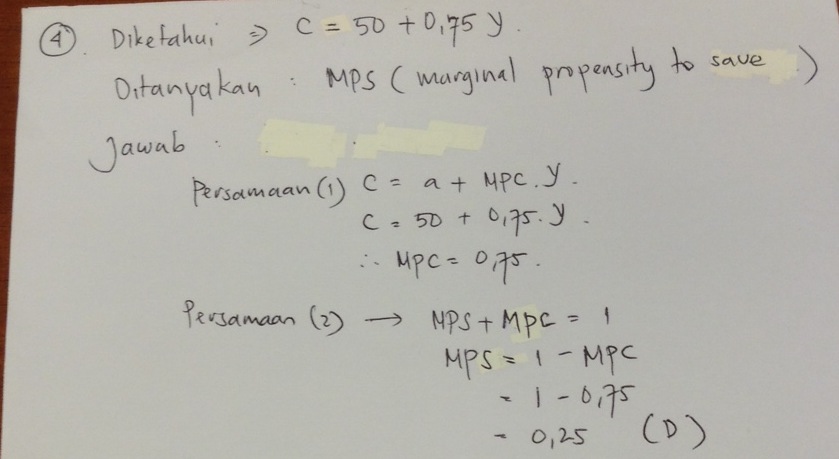 ④. Diketahui ⇒ C = 50 + 0,75 Y.
Ditanyakan : MPS ( marginal propensity to save )
Jawab :
Persamaan (1) C = a + MPC . Y .
C = 50 + 0,75 . Y .
∴ MPC = 0,75 .
Persamaan (2) → MPS + MPC = 1
MPS = 1 - MPC
= 1 - 0,75
= 0,25 (D)